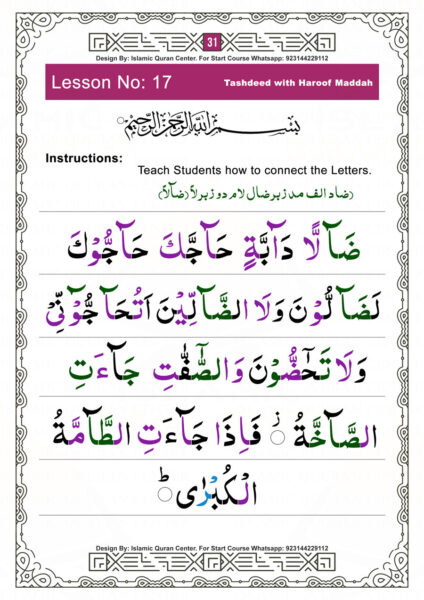 31
Design By: Islamic Quran Center. For Start Course Whatsapp: 923144229112
Lesson No: 17
Tashdeed with Haroof Maddah
بِسْمِ اللهِ الرَّحْمٰنِ الرَّحِيْمِ
Instructions:
Teach Students how to connect the Letters.
(ضاد الف مد زبر ضال لام دو زبر لاً ضَآلًّا)
ضَآلًّا دَآبَّةٍ حَآجَّكَ حَآجُّوْكَ
لَضَآلُّوْنَ وَلَا الضَّآلِّيْنَ اَتُحَآجُّوْٓنِّيْ
وَلَا تَحٰٓضُّوْنَ وَالصّٰٓفّٰتِ جَآءَتِ
الصَّآخَّةُ ۞ ز فَاِذَا جَآءَتِ الطَّآمَّةُ
الْكُبْرٰى ۞ ط
Design By: Islamic Quran Center. For Start Course Whatsapp: 923144229112